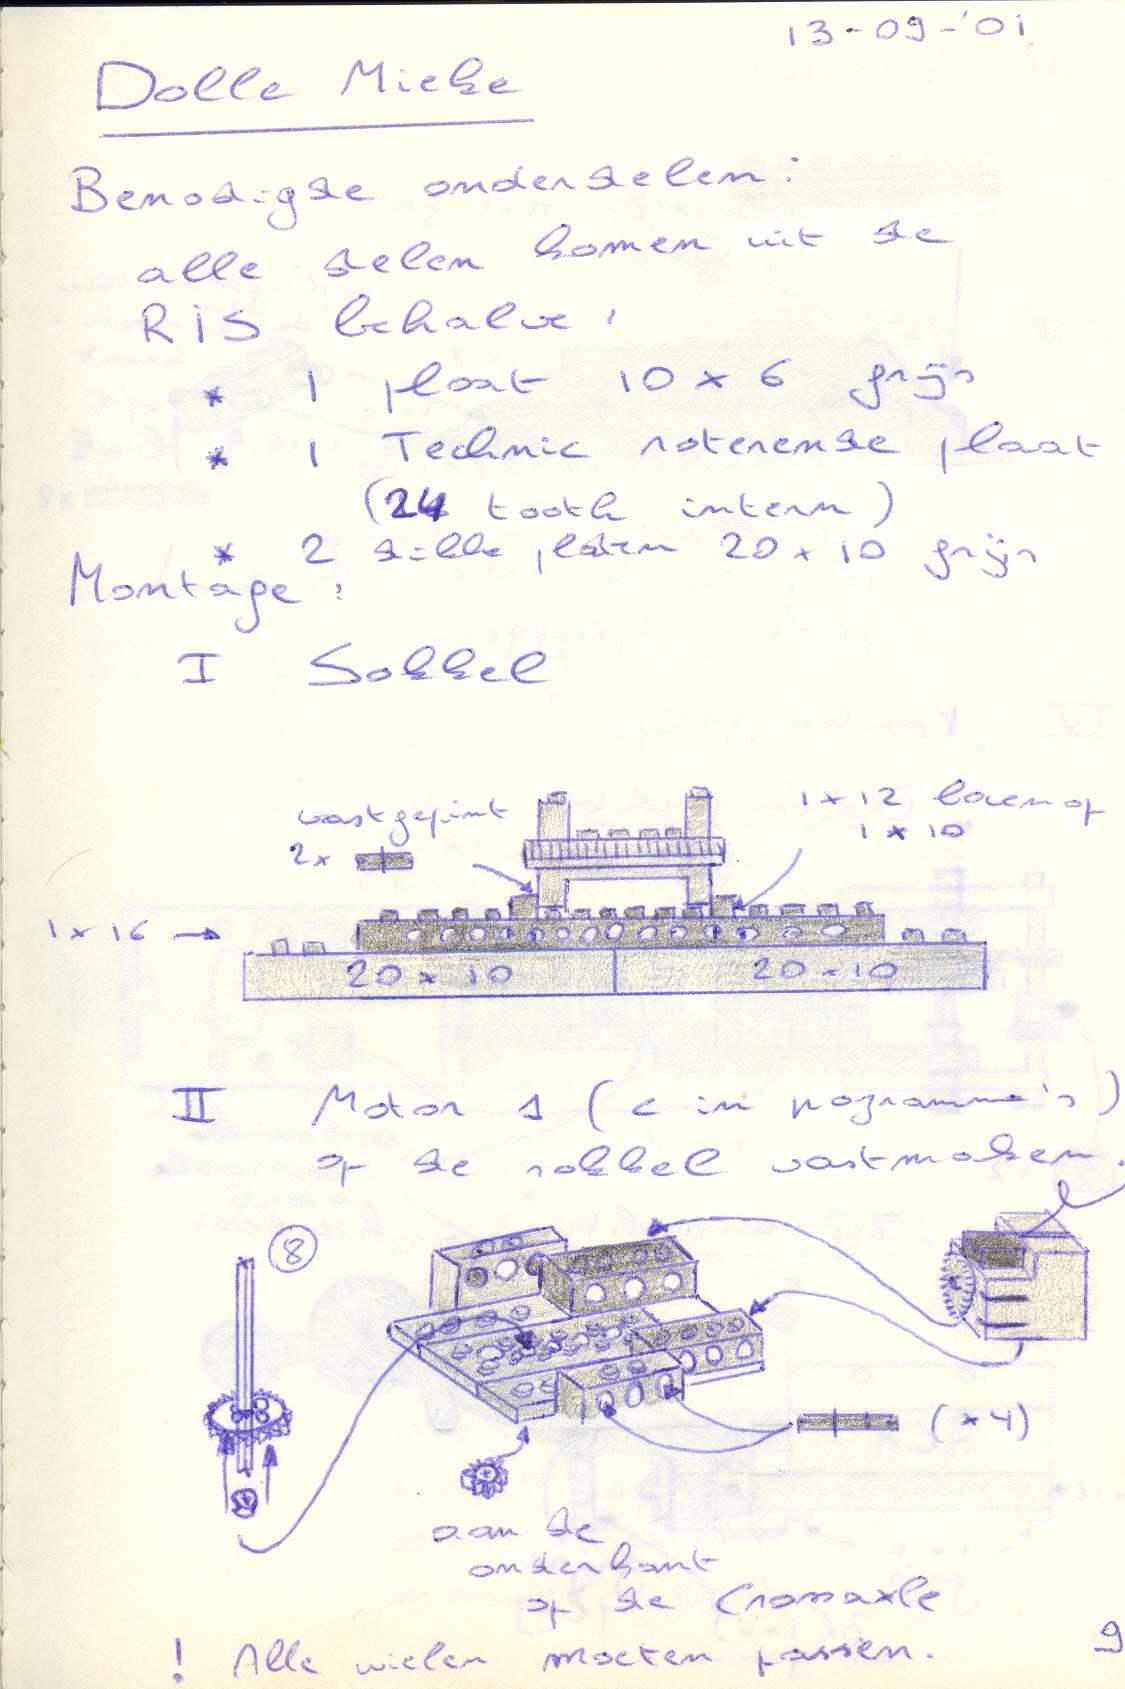 13-09-'01
Dolle Mieke
Benodigde onderdelen:
alle delen komen uit de
RIS behalve:
* 1 plaat 10 x 6 grijs
* 1 Technic roterende plaat
(24 tooth intern)
* 2 dikke platen 20 x 10 grijs
Montage:
I Sokkel
vastgepint
2x
1 x 12 bovenop
1 x 10
1 x 16
20 x 10
20 x 10
II Motor 1 (c in programma's)
op de sokkel vastmaken.
8
(x4)
aan de
onderkant
op de Crossaxle
! Alle wielen moeten passen.
9